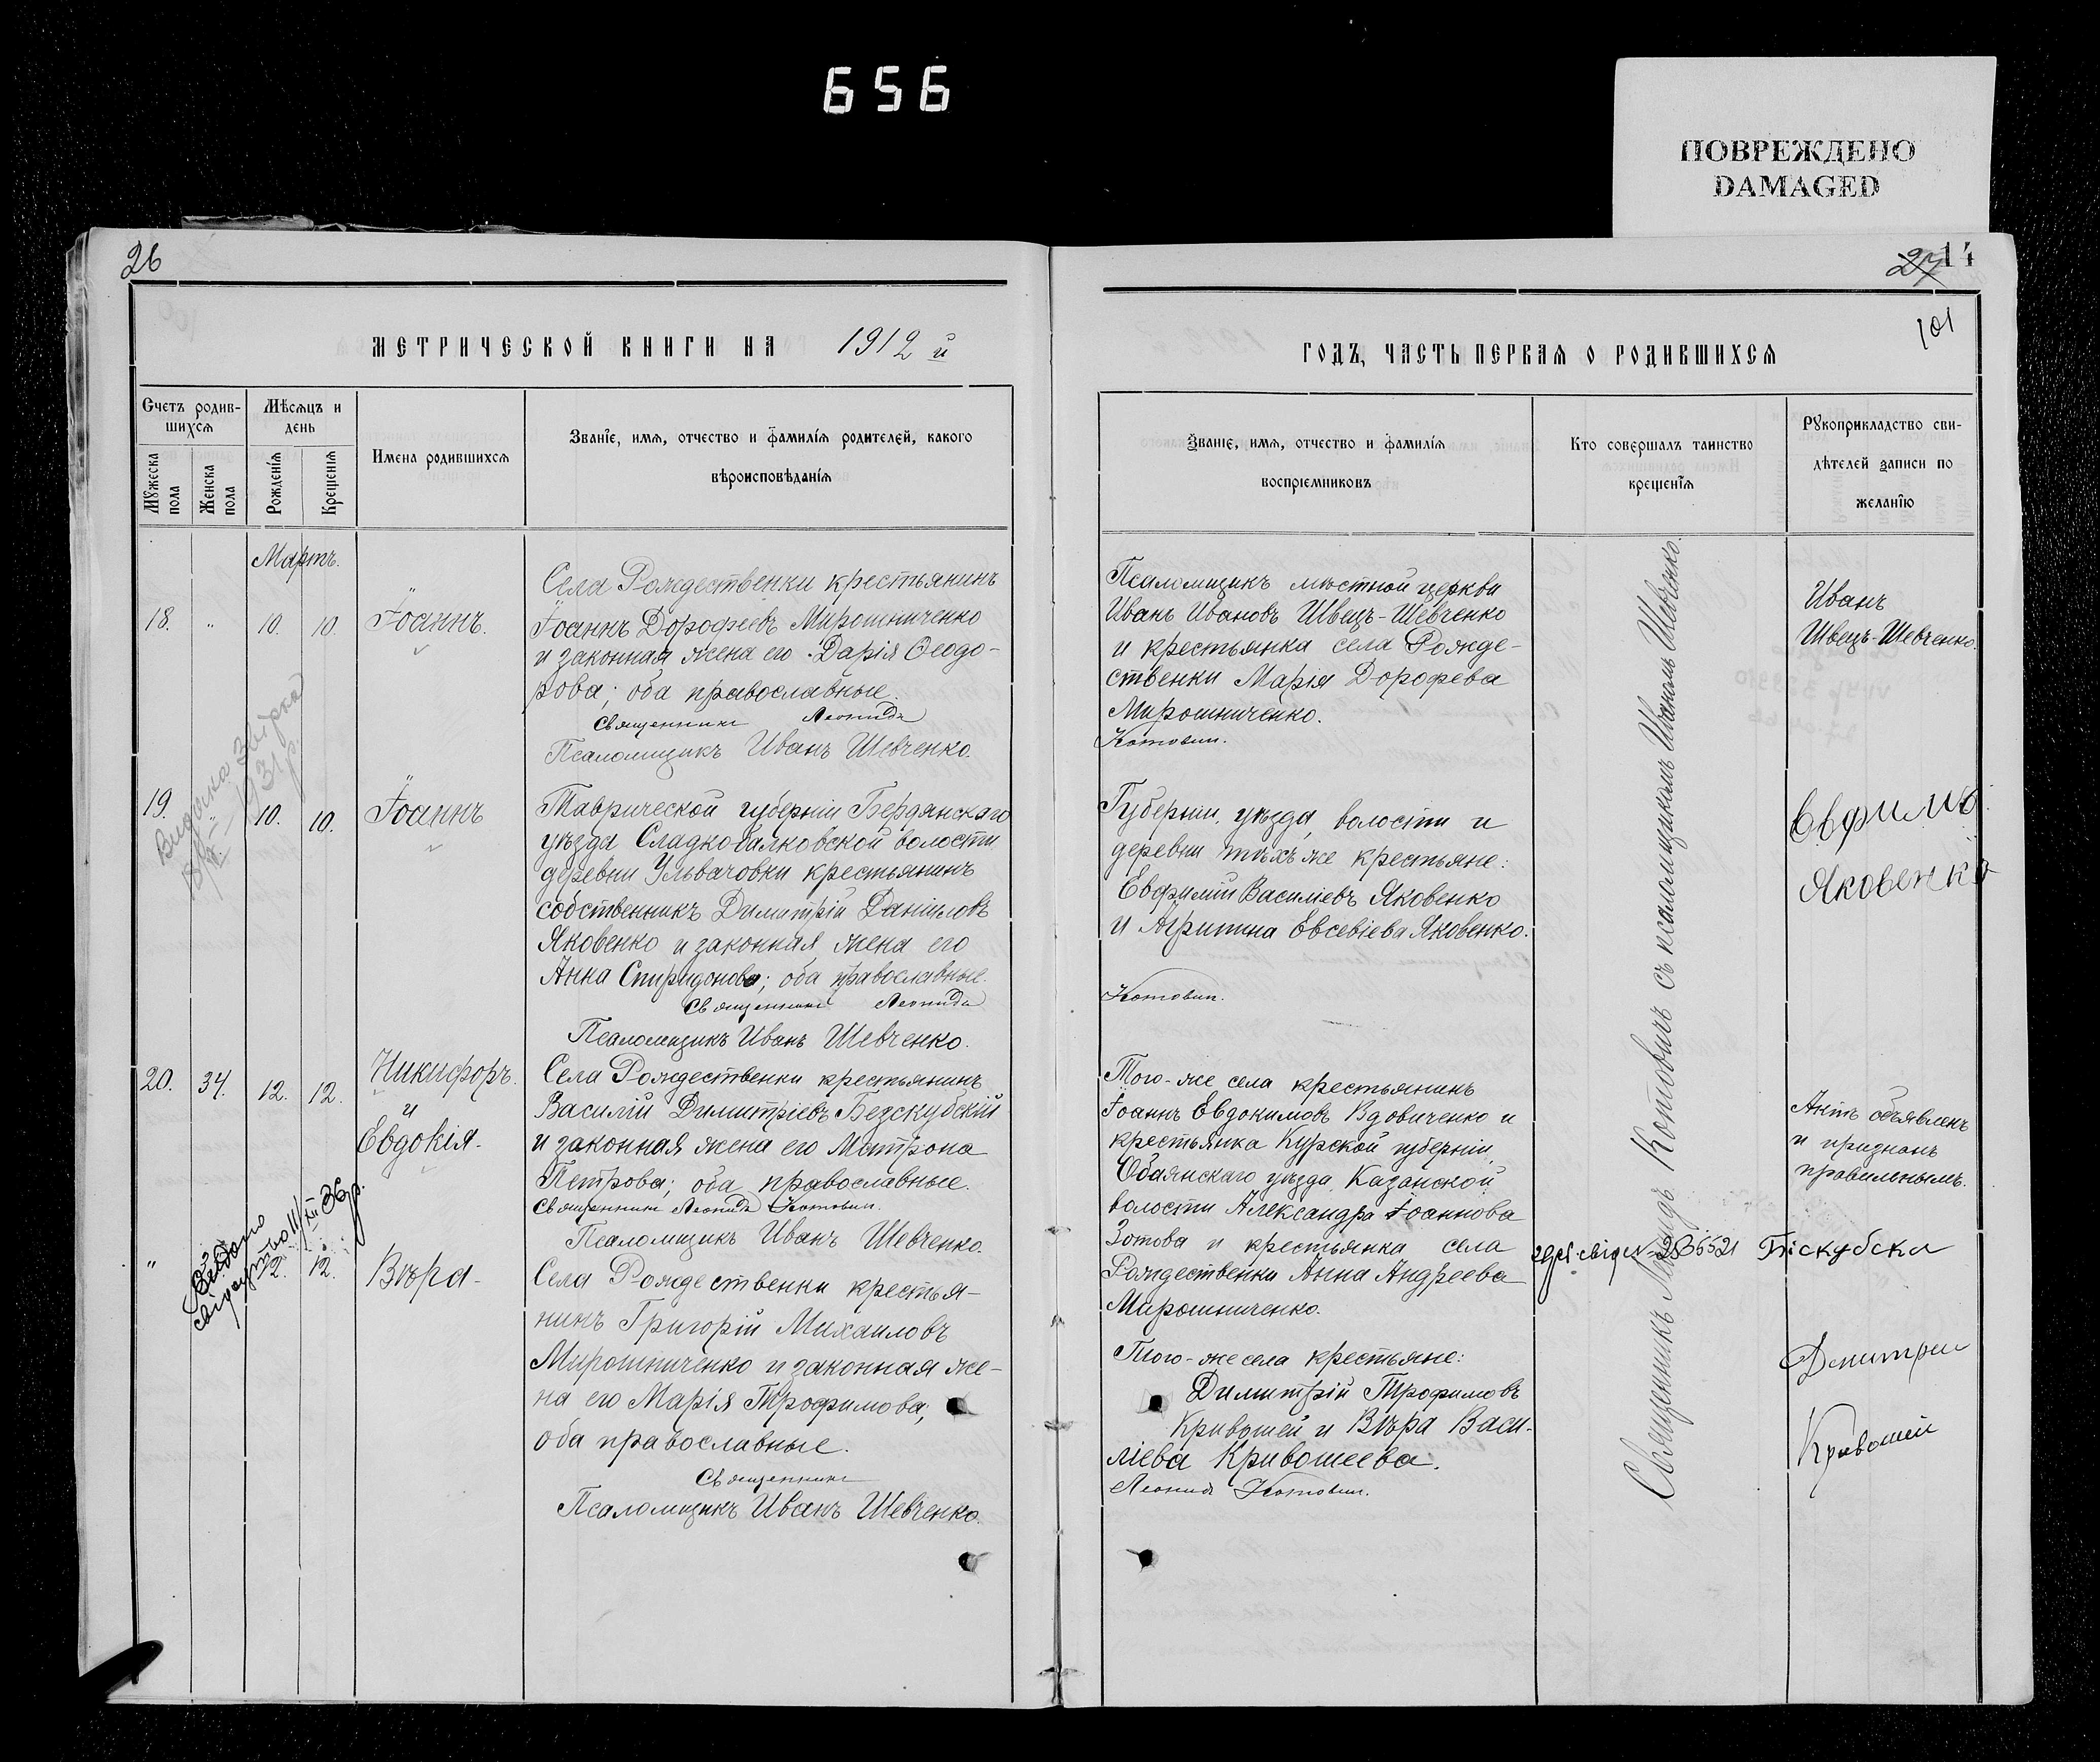 656
ПОВРЕЖДЕНО
DAMAGED
26
МЕТРИЧЕСКОЙ КНИГИ НА 1912 й
Счетъ родив-
шихся
Мѣсяцъ и
день
Имена родившихся
Званіе, имя, отчество и фамилія родителей, какого
вѣроисповѣданія
Мужеска
пола
Женска
пола
Рожденія
Крещенія
Мартъ.
18. " 10. 10. Іоаннъ.
Села Рождественки крестьянинъ
Іоаннъ Дорофеевъ Мирошниченко
и законная жена его Дарія Ѳеодо-
рова; оба православные.
Священникъ Леонидъ
Псаломщикъ Иванъ Шевченко.
19. " 10. 10. Іоаннъ
Таврической губерніи Бердянскаго
уѣзда Сладкобалковской волости
деревни Ульвачовки крестьянинъ
собственникъ Димитрій Даніиловъ
Яковенко и законная жена его
Анна Спиридонова; оба православные.
Священникъ Леонидъ
Псаломщикъ Иванъ Шевченко.
20. 34. 12. 12. Никифоръ.
и
Евдокія.
Села Рождественки крестьянинъ
Василій Димитріевъ Безскубскій
и законная жена его Матрона
Петрова; оба православные.
Священникъ Леонидъ Котовичъ.
Псаломщикъ Иванъ Шевченко.
Видано
36 р.
" 12. 12. Вѣра
Села Рождественки крестья-
нинъ Григорій Михаиловъ
Мирошниченко и законная же-
на его Марія Трофимова;
оба православные.
Священникъ
Псаломщикъ Иванъ Шевченко.
27 14
101
ГОДЪ, ЧАСТЬ ПЕРВАЯ О РОДИВШИХСЯ
Званіе, имя, отчество и фамилія
воспріемниковъ
Кто совершалъ таинство
крещенія
Рукоприкладство сви-
дѣтелей записи по
желанію
Псаломщикъ мѣстной церкви
Иванъ Ивановъ Швецъ-Шевченко
и крестьянка села Рожде-
ственки Марія Дорофева
Мирошниченко.
Котовичъ.
Иванъ
Швецъ-Шевченко.
Губерніи, уѣзда, волости и
деревни тѣхъ же крестьяне:
Евфимій Василіевъ Яковенко
и Агрипина Евсевіева Яковенко.
Котовичъ.
Евфимъ
Яковенко
Того-же села крестьянинъ
Іоаннъ Евдокимовъ Вдовиченко и
крестьянка Курской губерніи,
Обаянскаго уѣзда, Казанской
волости Александра Іоаннова
Зотова и крестьянка села
Рождественки Анна Андреева
Мирошниченко.
Актъ объявленъ
и признанъ
правильнымъ.
Того-же села крестьяне:
Димитрій Трофимовъ
Кривошей и Вѣра Васи-
ліева Кривошеева.
Леонидъ Котовичъ.
Дмитрии
Кривошей
Священникъ Леонидъ Котовичъ съ псаломщикомъ Иваномъ Шевченко.